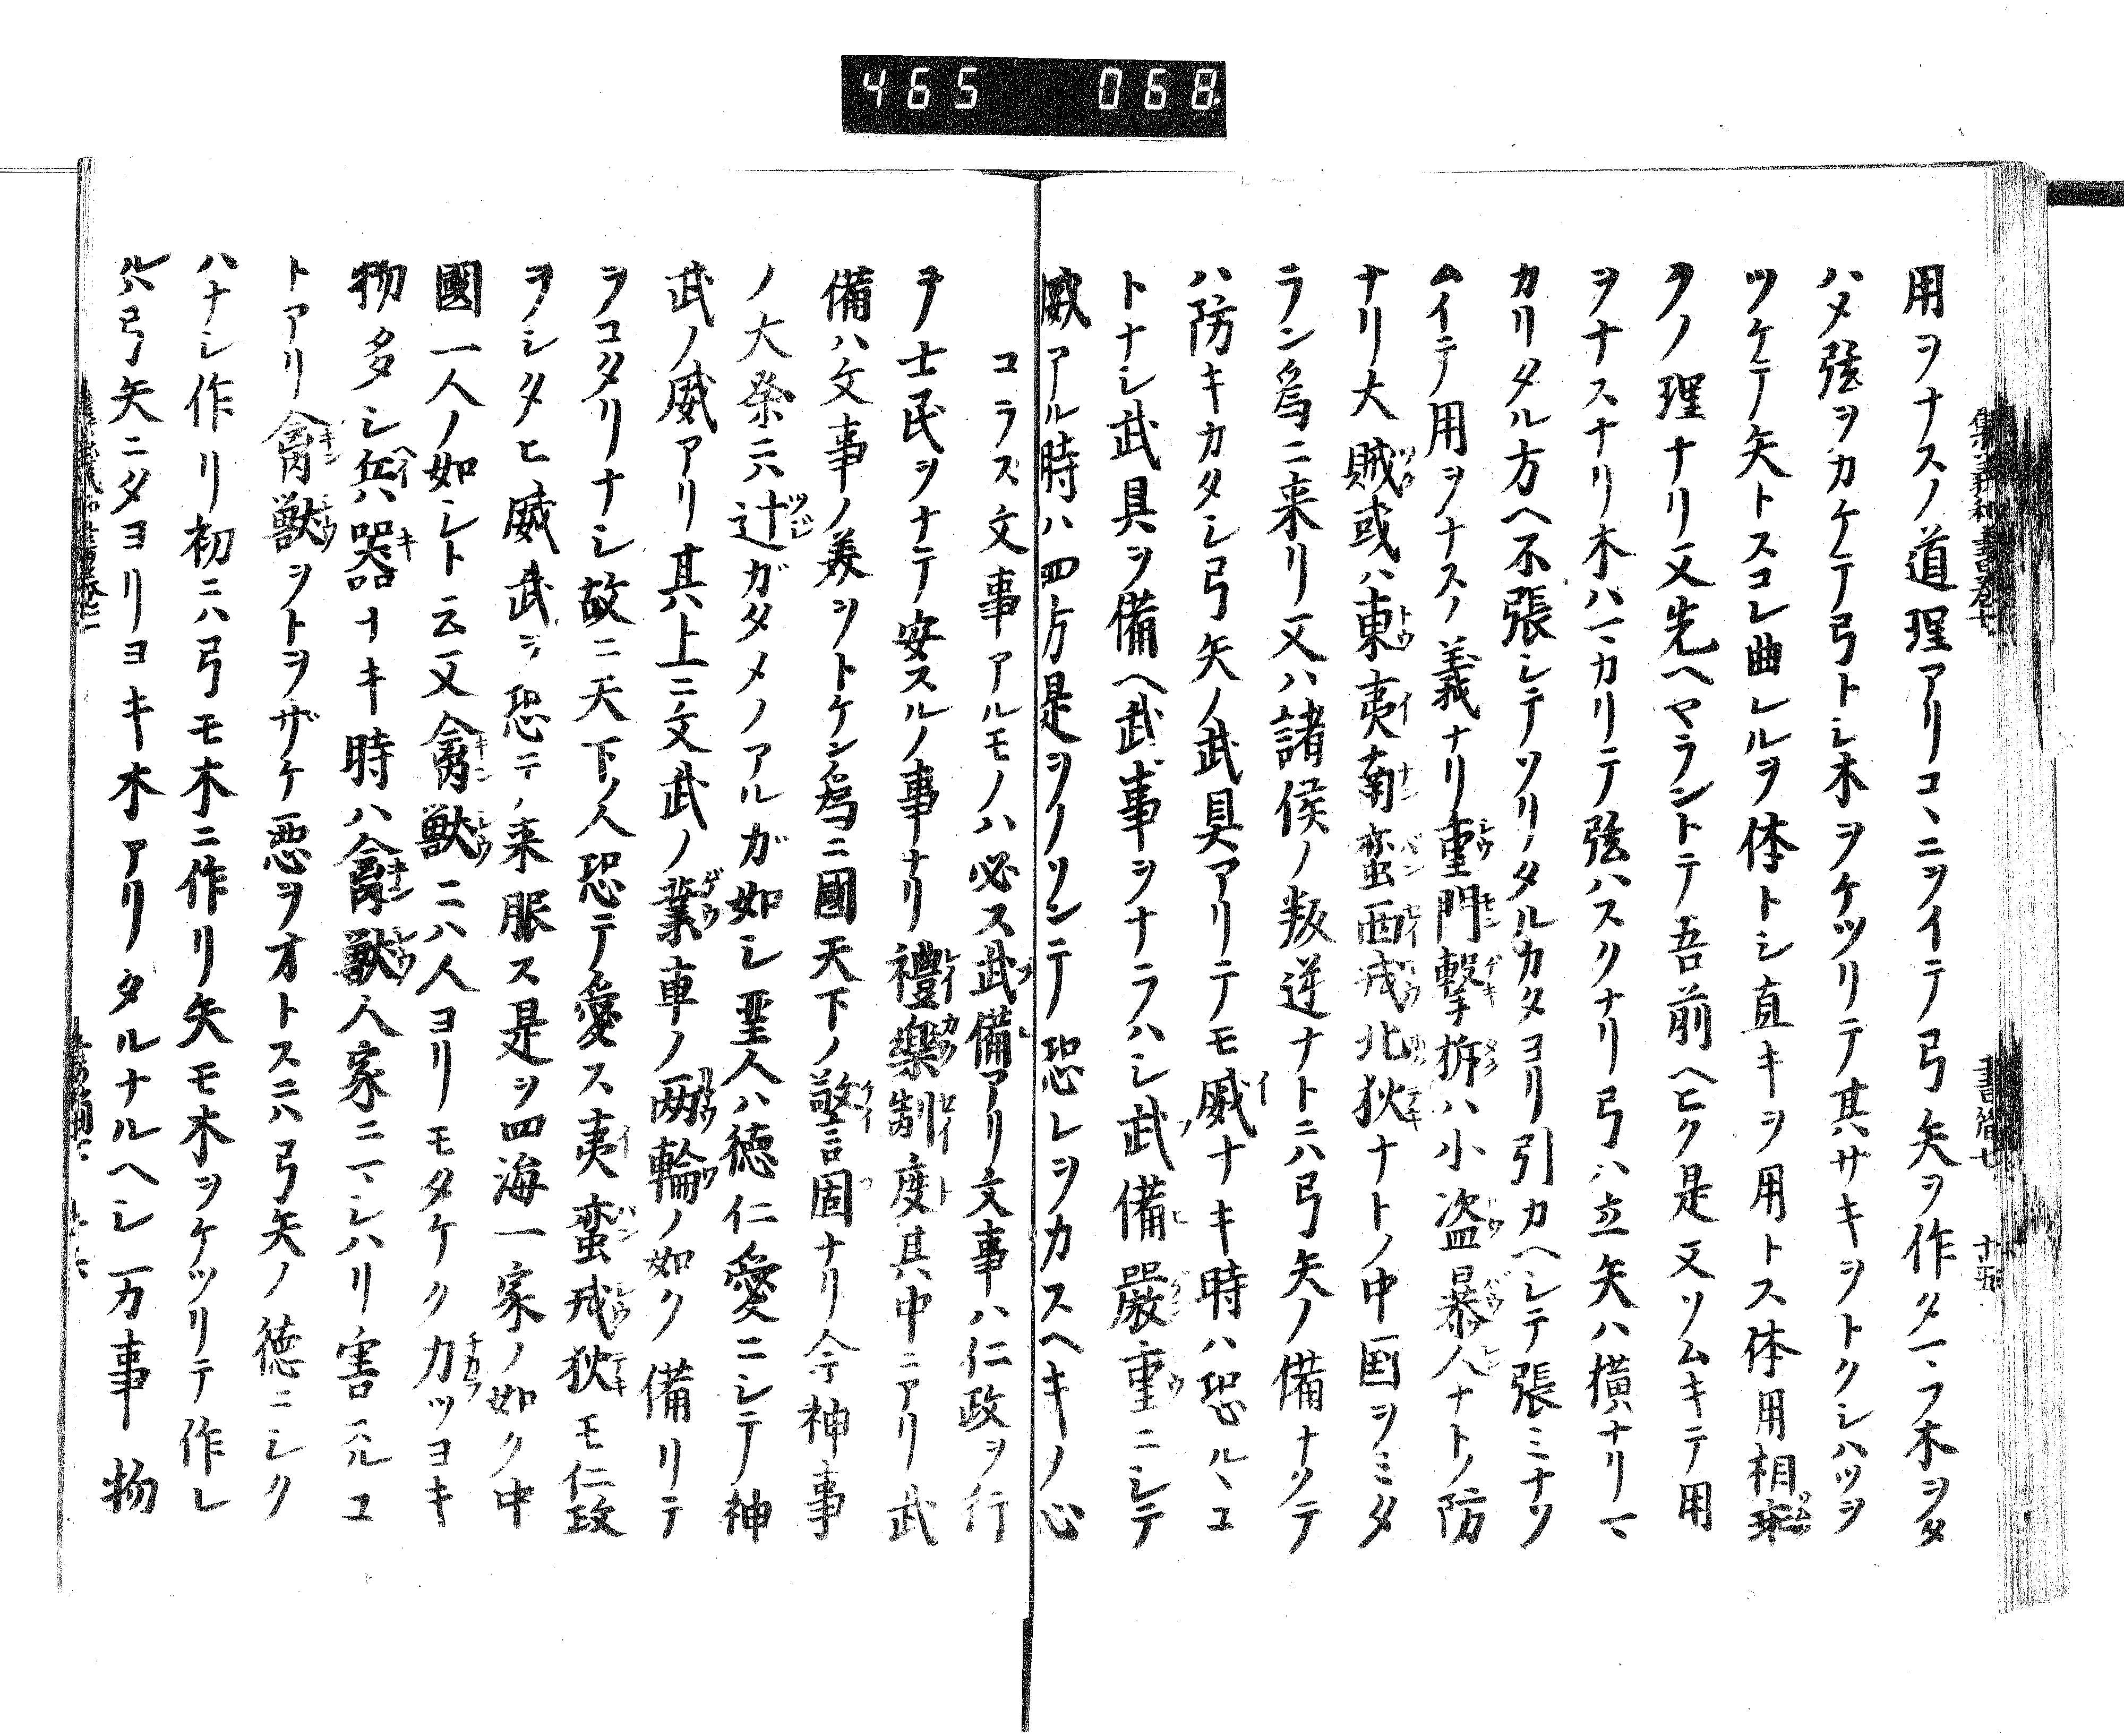 465 068
集義和書巻七 書簡七 十五
用ヲナスノ道理アリコヽニヲイテ弓矢ヲ作タマフ木ヲタ
ハメ弦ヲカケテ弓トシ木ヲケツリテ其サキヲトクシハツヲ
ツケテ矢トスコレ曲レルヲ体トシ直キヲ用トス体用相乖
クノ理ナリ又先ヘヤラントテ吾前ヘヒク是又ソムキテ用
ヲナスナリ木ハマカリテ弦ハスクナリ弓ハ立矢ハ横ナリマ
カリタル方ヘ不張シテソリタルカタヨリ引カヘシテ張ミナソ
ムイテ用ヲナスノ義ナリ重門撃拆ハ小盗暴人ナトノ防
ナリ大賊或ハ東夷南蛮西戎北狄ナトノ中国ヲミタ
ラン為ニ来リ又ハ諸侯ノ叛逆ナトニハ弓矢ノ備ナクテ
ハ防キカタシ弓矢ノ武具アリテモ威ナキ時ハ恐ルヽコ
トナシ武具ヲ備ヘ武事ヲナラハシ武備嚴重ニシテ
威アル時ハ四方是ヲノソンテ恐レヲカスヘキノ心
コラス文事アルモノハ必ス武備アリ文事ハ仁政ヲ行
ヲ士民ヲナテ安スルノ事ナリ禮樂制度其中ニアリ武
備ハ文事ノ美ヲトケン為ニ國天下ノ警固ナリ今神事
ノ大祭ニハ辻ガタメノアルガ如シ聖人ハ徳仁愛ニシテ神
武ノ威アリ其上ニ文武ノ業車ノ両輪ノ如ク備リテ
ヲコタリナシ故ニ天下ノ人恐テ愛ス夷蛮戎狄モ仁政
ヲシタヒ威武ヲ恐テ来服ス是ヲ四海一家ノ如ク中
國一人ノ如シト云又禽獣ニハ人ヨリモタケク力ツヨキ
物多シ兵器ナキ時ハ禽獣人家ニマシハリ害スルコ
トアリ禽獣ヲトヲザケ悪ヲオトスニハ弓矢ノ徳ニシク
ハナシ作リ初ニハ弓モ木ニ作リ矢モ木ヲケツリテ作レ
ルハ弓矢ニタヨリヨキ木アリタルナルヘシ万事物